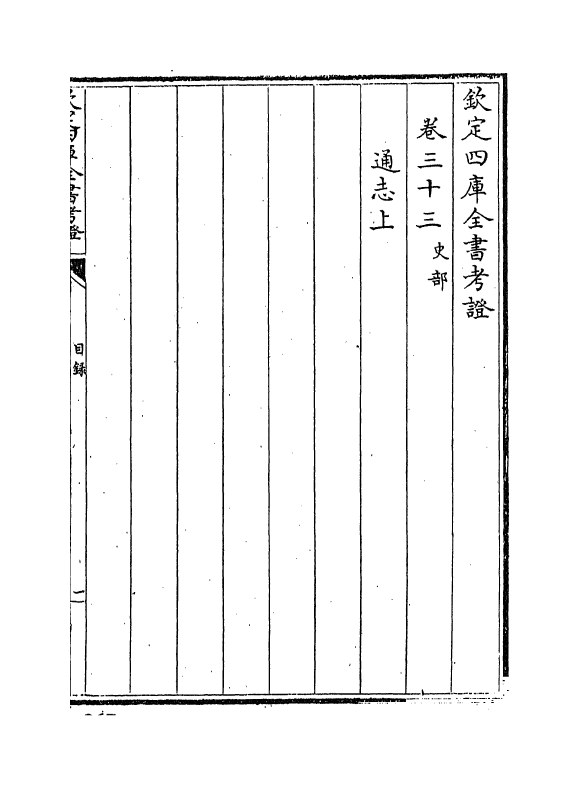 欽定四庫全書考證
卷三十三 史部
通志上
欽定四庫全書考證
目錄
一